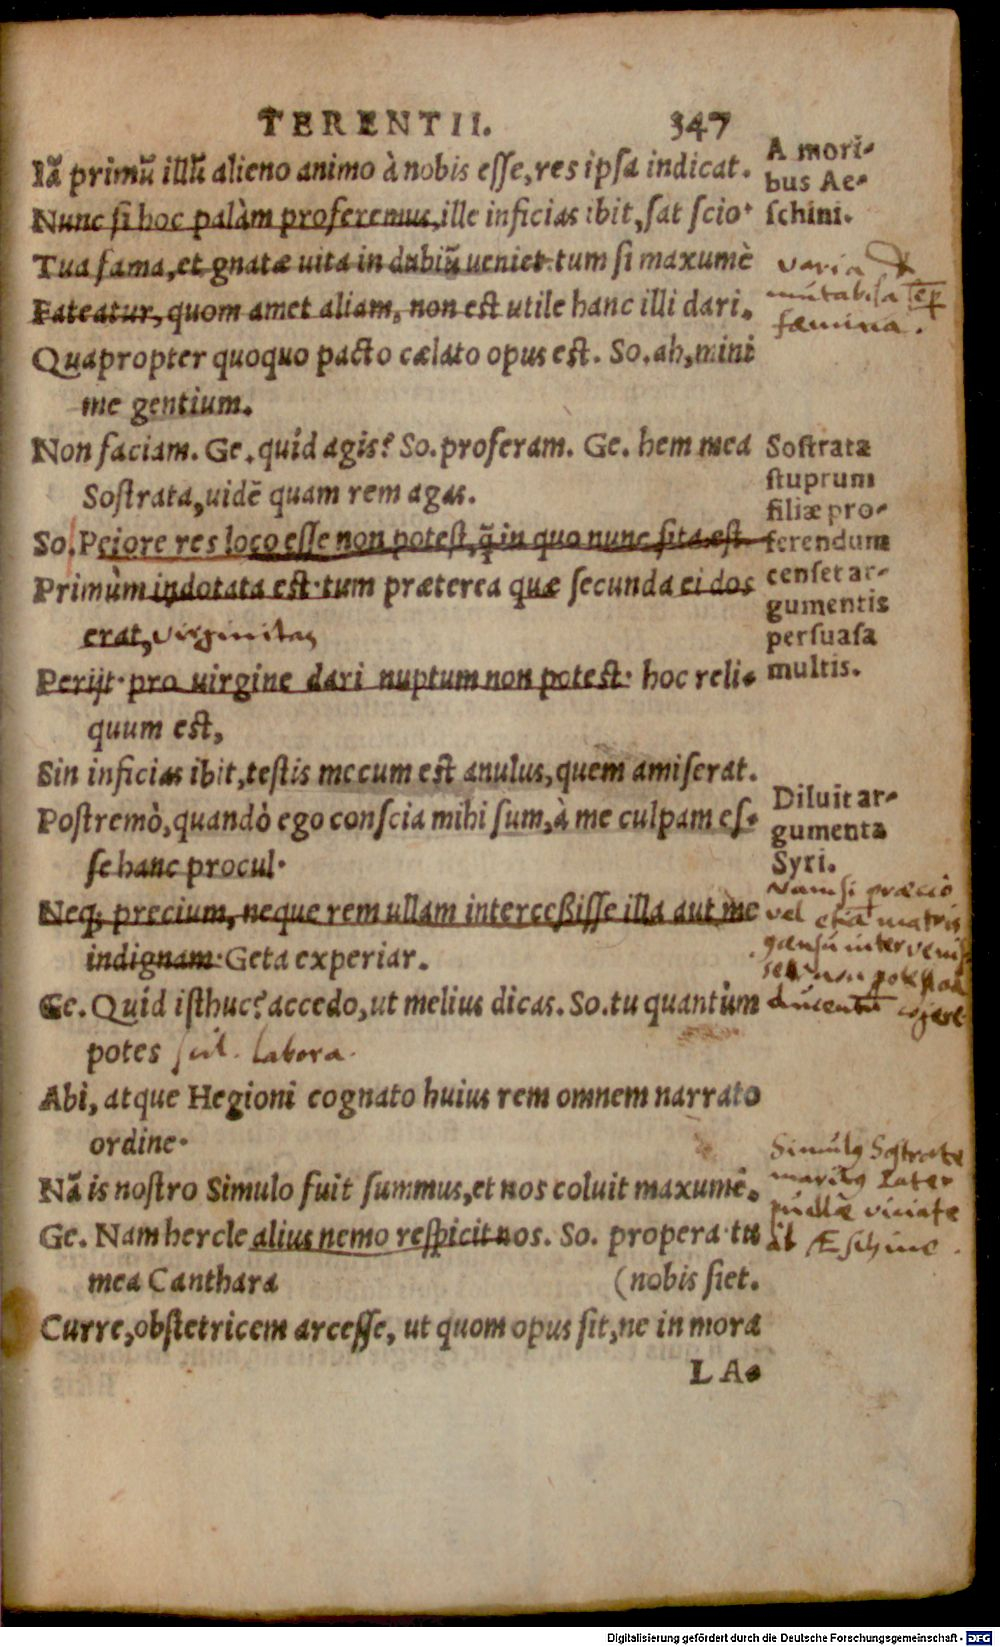 TERENTII. 347
Iā primū illū alieno animo à nobis esse, res ipsa indicat.
Nunc si hoc palàm proferemus, ille inficias ibit, sat scio.
Tua fama, et gnatæ uita in dubiū ueniet. tum si maxumè
Fateatur, quom amet aliam, non est utile hanc illi dari.
Quapropter quoquo pacto cælato opus est. So. ah, mini
me gentium.
Non faciam. Ge. quid agis? So. proferam. Ge. hem mea
Sostrata, uidē quam rem agas.
So. Peiore res loco esse non potest, q̄ in quo nunc sita est
Primùm indotata est. tum præterea quæ secunda ei dos
erat, virginitas
Perijt. pro uirgine dari nuptum non potest. hoc reli-
quum est,
Sin inficias ibit, testis mecum est anulus, quem amiserat.
Postremò, quandò ego conscia mihi sum, à me culpam es-
se hanc procul.
Neq; precium, neque rem ullam intercessisse illa aut me
indignam. Geta experiar.
Ge. Quid isthuc? accedo, ut melius dicas. So. tu quantùm
potes scil. labora.
Abi, atque Hegioni cognato huius rem omnem narrato
ordine.
Nā is nostro Simulo fuit summus, et nos coluit maxumè.
Ge. Nam hercle alius nemo respicit nos. So. propera. tu
mea Canthara (nobis siet.
Curre, obstetricem arcesse, ut quom opus sit, ne in mora
LA-
A mori-
bus Ae-
schini.
varia &
mutabila sēp
fæmina.
Sostrata
stuprum
filiæ pro-
ferendum
censet ar-
gumentis
persuasa
multis.
Diluit ar-
gumenta
Syri.
Nam si præcio
vel etiā matris
intervenis
non potest ad
cogere
Simulus Sostrate
maritus Pater
puellæ viciate
ab Æschine.
Digitalisierung gefördert durch die Deutsche Forschungsgemeinschaft - DFG